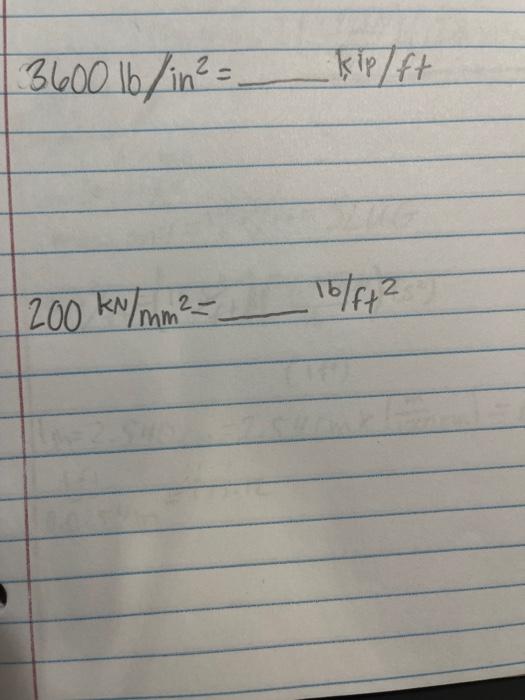 3600 lb/in² = ____ kip/ft
200 kN/mm² = ____ lb/ft²